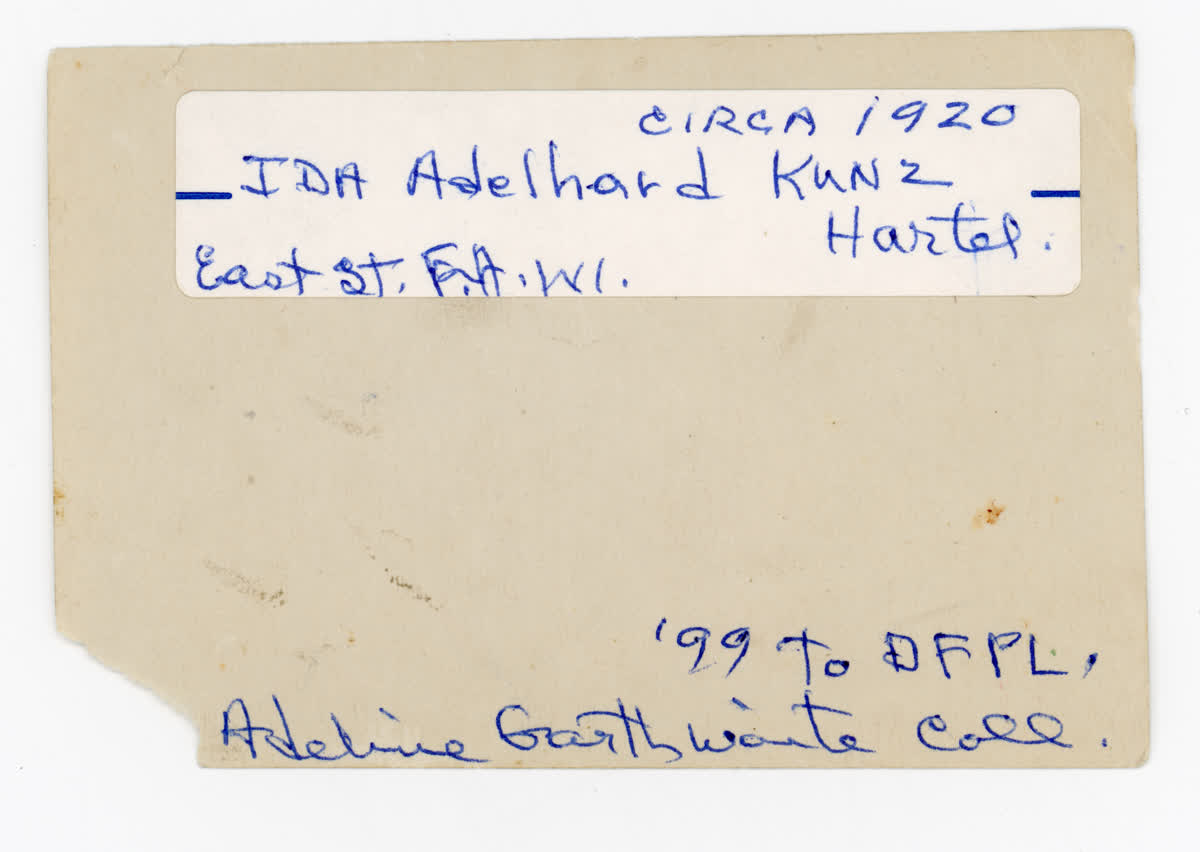 CIRCA 1920
IDA Adelhard KUNZ
Hartel.
East St. F.A. WI.
'99 To DFPL.
Adeline Garthwaite Coll.